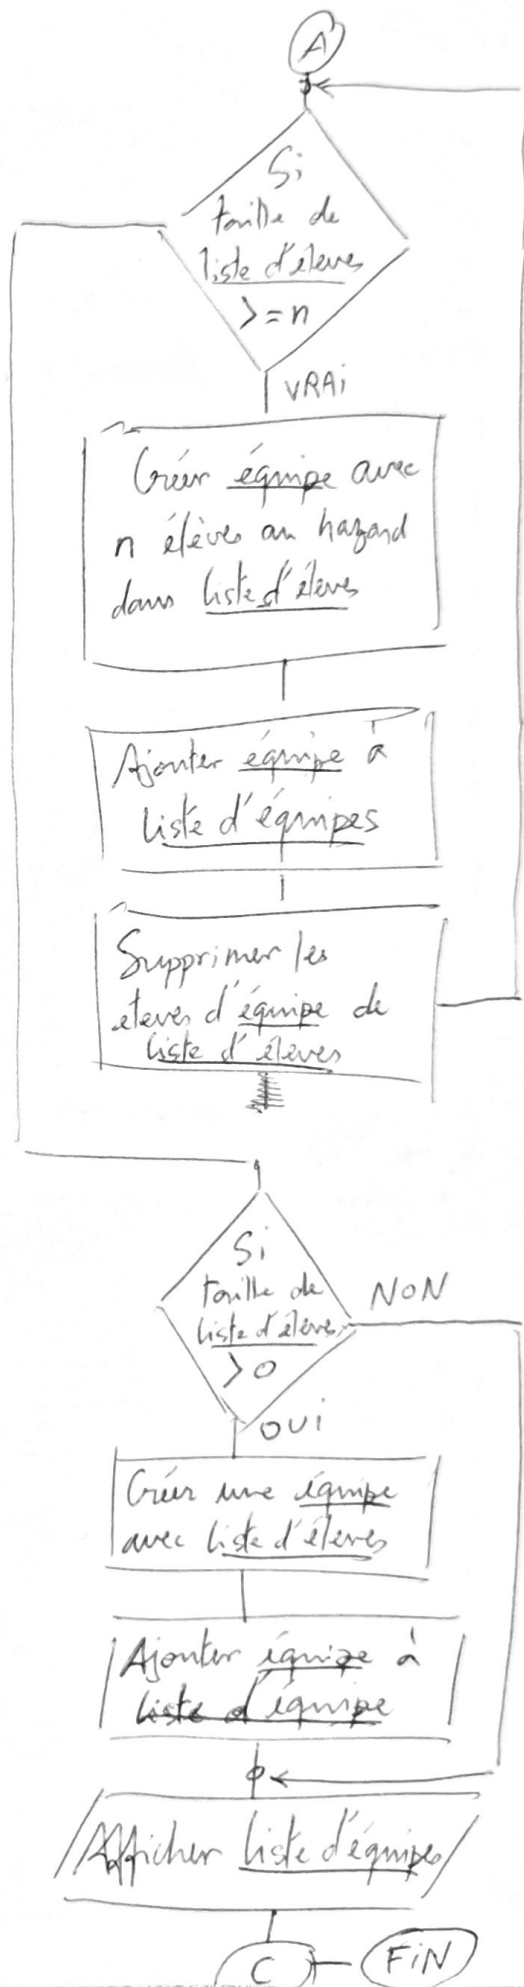 A
Si
taille de
liste d'élèves
>=n
VRAi
Créer équipe avec
n élèves au hazard
dans liste d'élèves
Ajouter équipe à
liste d'équipes
Supprimer les
élèves d'équipe de
liste d'élèves
Si
taille de
liste d'élèves
>0
NON
OUi
Créer une équipe
avec liste d'élèves
Ajouter équipe à
liste d'équipe
Afficher liste d'équipes
C
FiN